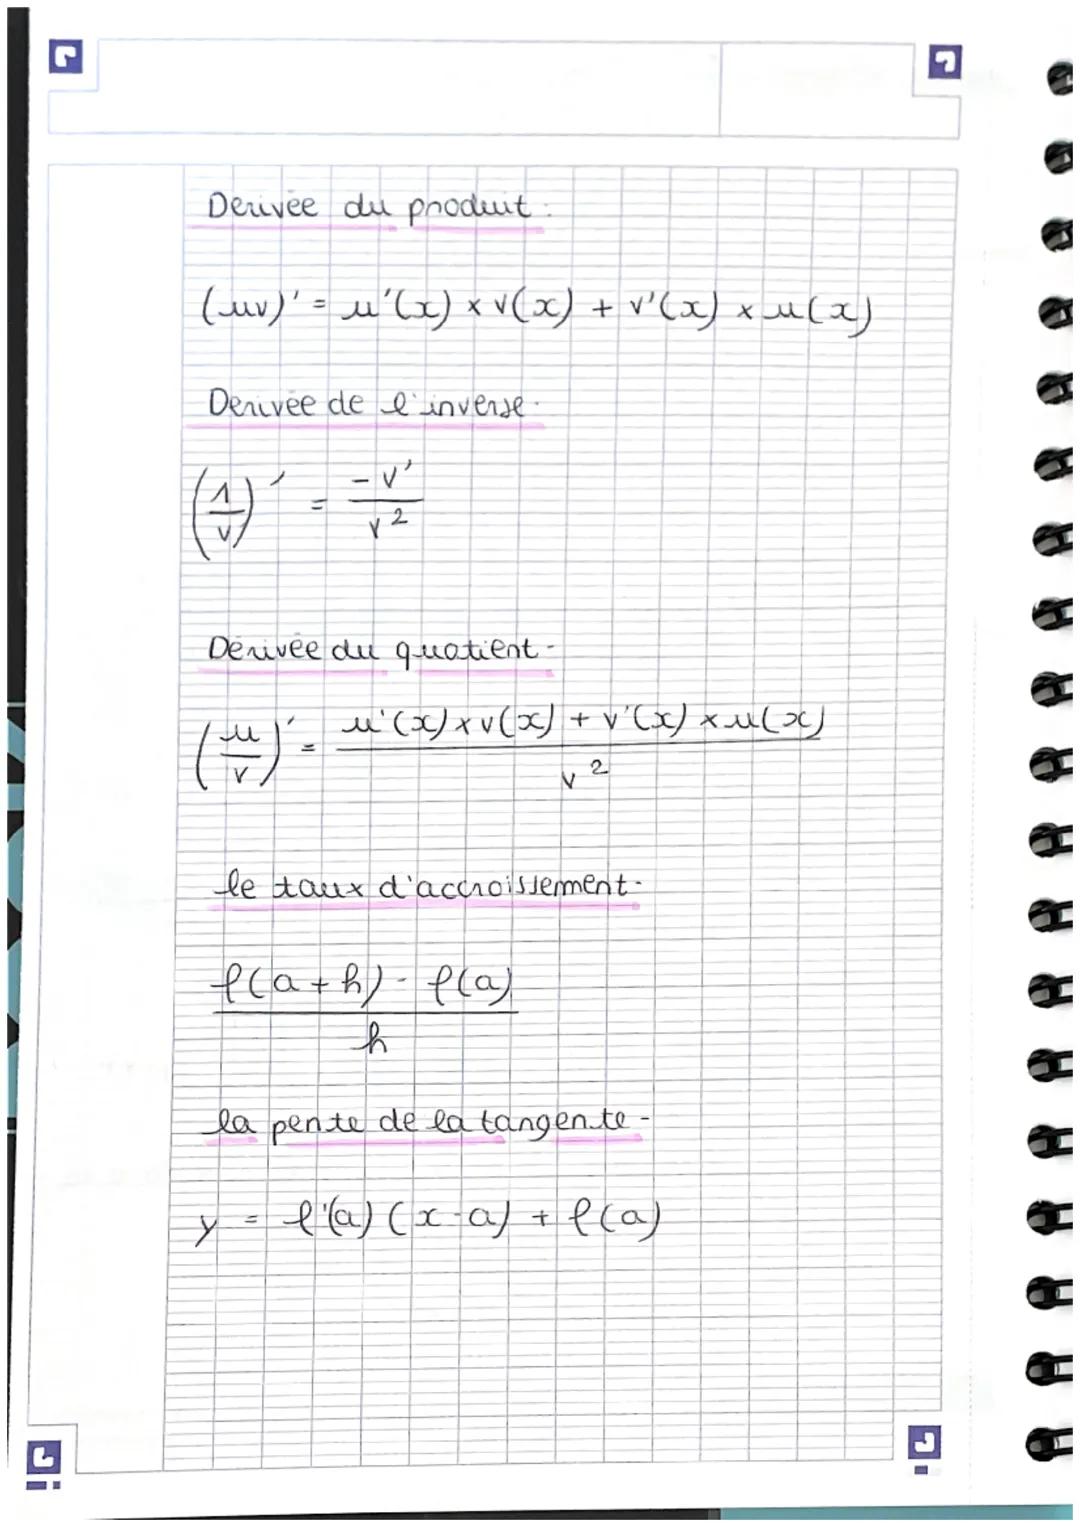 Derivée du produit :
(uv)' = u'(x) × v(x) + v'(x) × u(x)
Derivée de l'inverse.
(1/v)' = -v'/v²
Dérivée du quotient -
(u/v)' = u'(x) × v(x) + v'(x) × u(x) / v²
le taux d'accroissement.
f(a+h) - f(a) / h
la pente de la tangente -
y = f'(a) (x-a) + f(a)